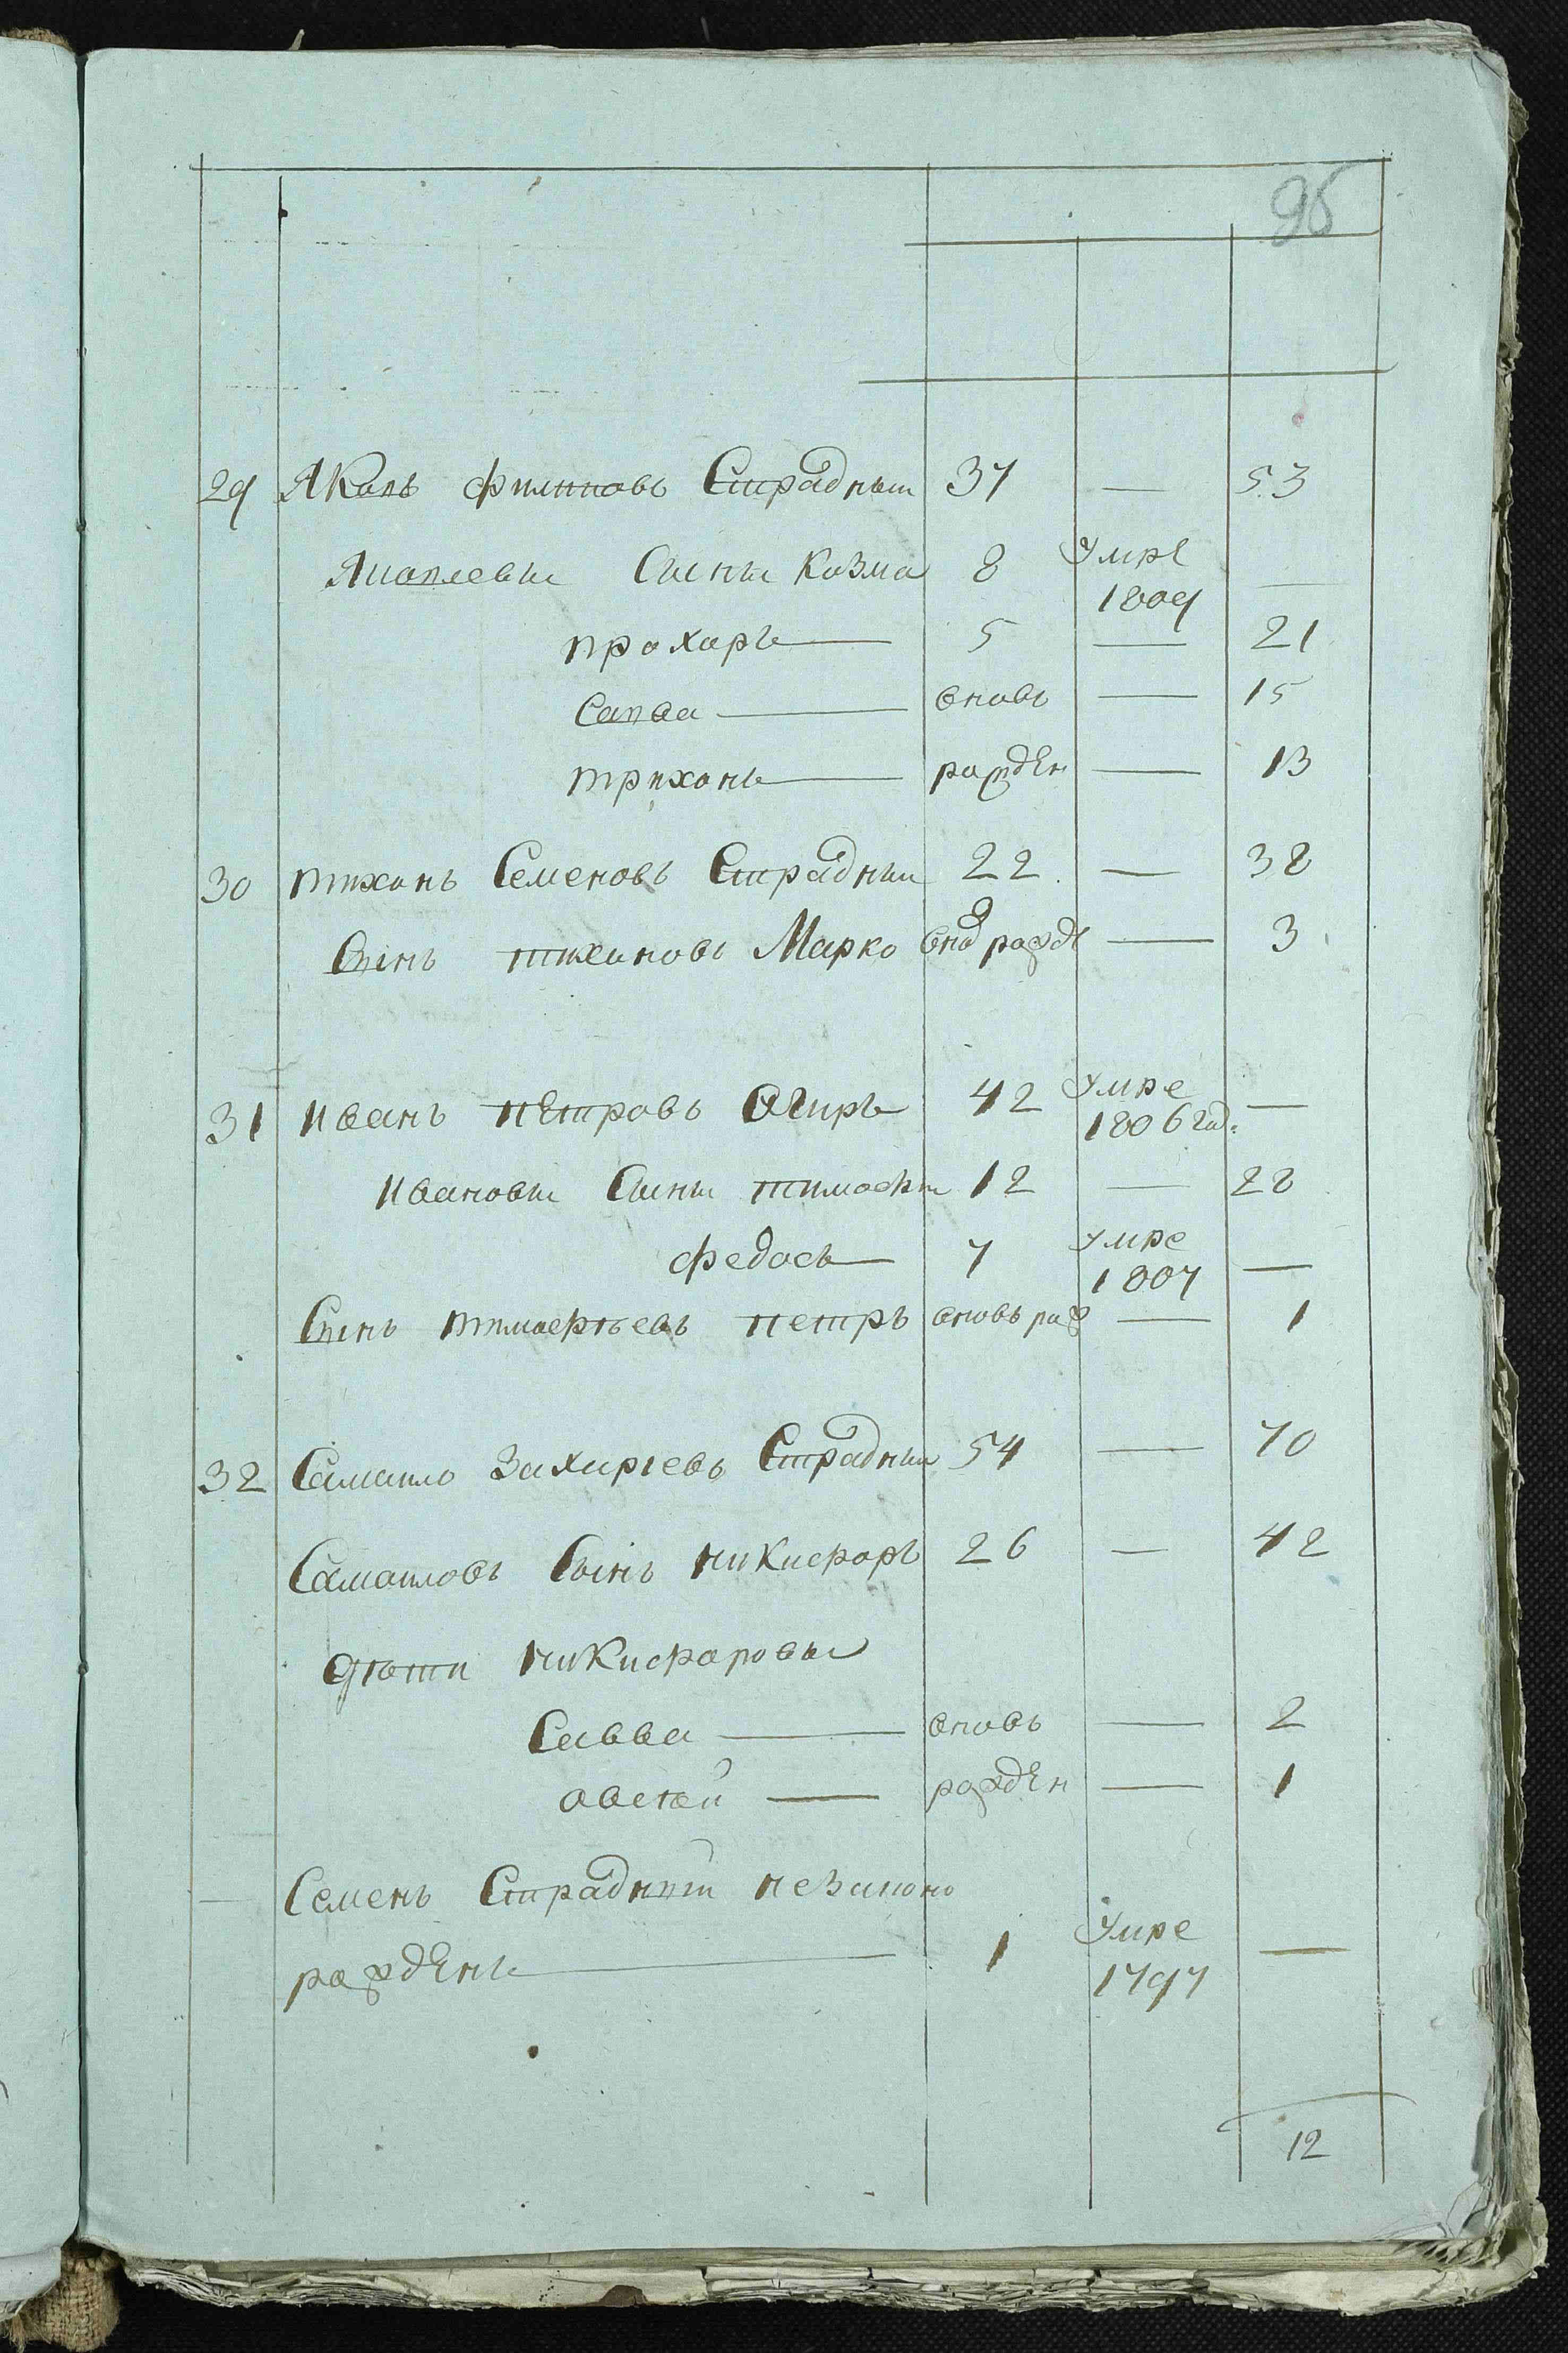 96
29 Яковъ филиповъ Страдный 37 — 53
Яковлевы Сыны Козма 8 Умре 1809 —
прохоръ — 5 — 21
Савва — вновь — 15
трихонъ — рожден — 13
30 тихонъ Семеновъ Страдный 22 — 38
Сынъ тихановъ Марко вно рожде — 3
31 иванъ петровъ Огиръ 42 Умре 1806 год: —
ивановы Сыны тимофѣи 12 — 28
федосъ — 7 умре 1807 —
Сынъ тимоертьевъ петръ вновь рож — 1
32 Самоило Захарьевъ Страдный 54 — 70
Самоиловъ Сынъ никифоръ 26 — 42
дѣти никифоровы
Савва — вновь — 2
авсѣй — рожден — 1
— Семенъ Страдный незаконо
рожденъ — 1 Умре 1797 —
12